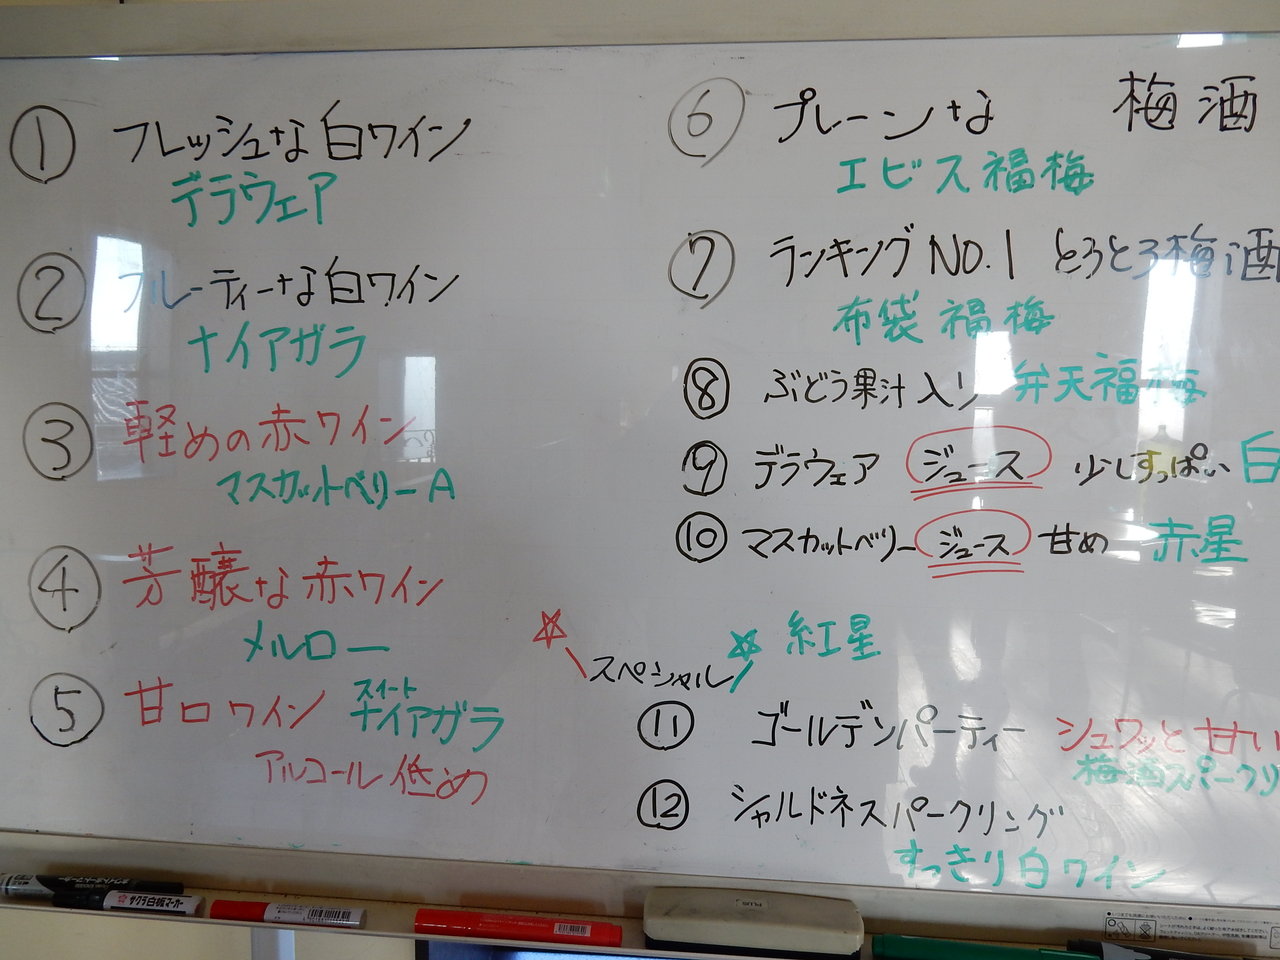 ① フレッシュな白ワイン
デラウェア
② フルーティーな白ワイン
ナイアガラ
③ 軽めの赤ワイン
マスカットベリーA
④ 芳醸な赤ワイン
メルロー
⑤ 甘口ワイン スイートナイアガラ
アルコール低め
⑥ プレーンな 梅酒
エビス福梅
⑦ ランキングNO.1 とろとろ梅酒
布袋福梅
⑧ ぶどう果汁入り 弁天福梅
⑨ デラウェア ジュース 少しすっぱい 白
⑩ マスカットベリー ジュース 甘め 赤星
☆スペシャル☆ 紅星
⑪ ゴールデンパーティー シュワッと甘い
梅酒スパークリ
⑫ シャルドネスパークリング
すっきり白ワイン
ホワイトボードマーカー
サクラ白板マーカー
PLUS